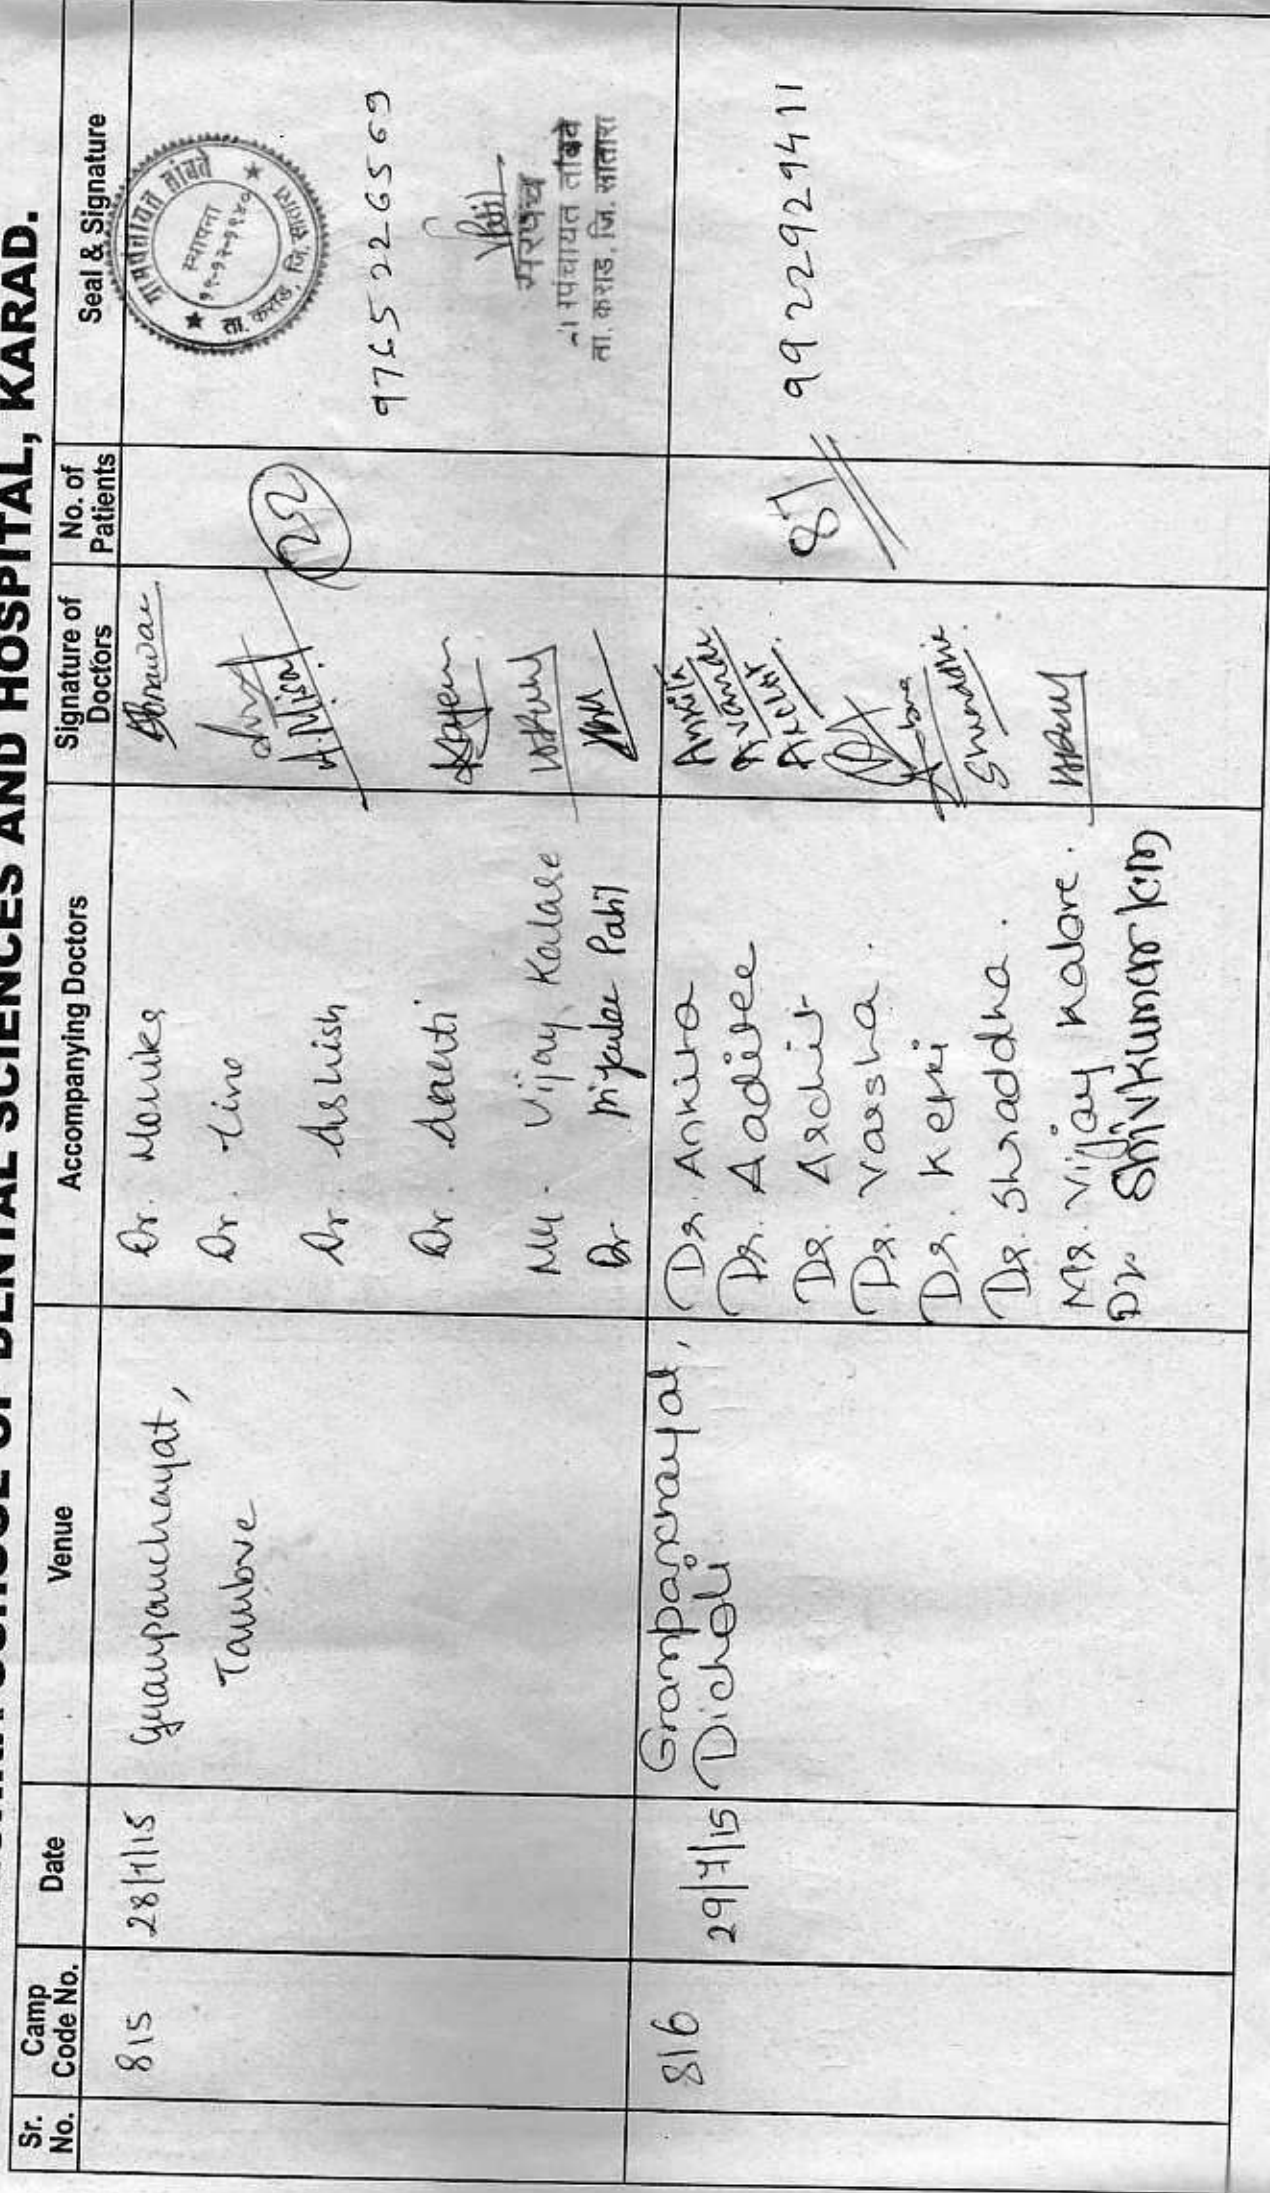 SCHOOL OF DENTAL SCIENCES AND HOSPITAL, KARAD.
Sr. No. Camp Code No. Date Venue Accompanying Doctors Signature of Doctors No. of Patients Seal & Signature
815 28/7/15 Grampanchayat,
Tambve
Dr. Monika
Dr. Tino
Dr. Ashish
Dr. Aarti
Mr. Vijay Kalare
Dr. Patil
122
ग्रामपंचायत तांबवे
स्थापना
ता. कराड, जि. सातारा
9765226569
सरपंच
ग्रामपंचायत तांबवे
ता. कराड, जि. सातारा
816 29/7/15 Grampanchayat,
Dicholi
Dr. Ankita
Dr. Aaditee
Dr. Archit
Dr. Varsha.
Dr. Ketki
Dr. Shraddha.
Mr. Vijay Kalare.
Dr. Shivkumar
Ankita
Archit
Shraddha
87
9922929411